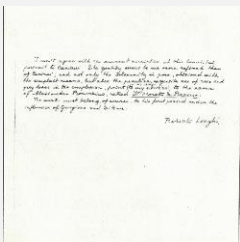 I don't agree with the current ascription of this beautiful
portrait to Cariani. Its quality seems to me more refined than
of Cariani; and not only the Selennity in pose, obtained with
the simplest means, but also the peculiar, exquisite use of rose and
grey tones in the complexion, point (to my advice), to the name
of Alessandro Bonvicino, called Il Moretto da Brescia.
The work must belong, of course, to his first period under the
influence of Giorgione and Titian.
Roberto Longhi